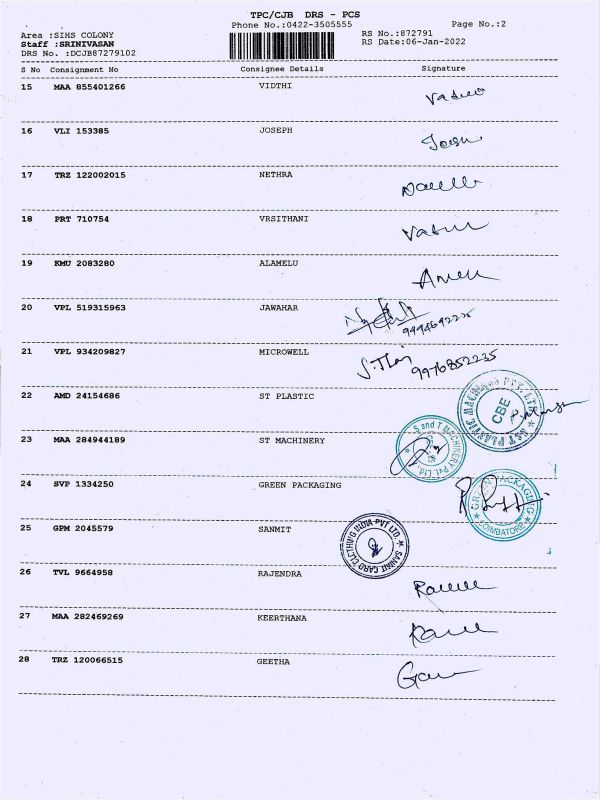 TPC/CJB DRS - PCS
Phone No.:0422-3505555
Page No.:2
Area :SIHS COLONY
RS No.:872791
Staff :SRINIVASAN
RS Date:06-Jan-2022
DRS No. :DCJB87279102
S No Consignment No Consignee Details Signature
15 MAA 855401266 VIDTHI
16 VLI 153385 JOSEPH
17 TRZ 122002015 NETHRA
18 PRT 710754 VRSITHANI
19 KMU 2083280 ALAMELU
20 VPL 519315963 JAWAHAR
9994692225
21 VPL 934209827 MICROWELL
9976852235
22 AMD 24154686 ST PLASTIC
CBE
23 MAA 284944189 ST MACHINERY
S and T MACHINERY Pvt. Ltd.
24 SVP 1334250 GREEN PACKAGING
GREEN PACKAGING
COIMBATORE
25 GPM 2045579 SANMIT
26 TVL 9664958 RAJENDRA
27 MAA 282469269 KEERTHANA
28 TRZ 120066515 GEETHA